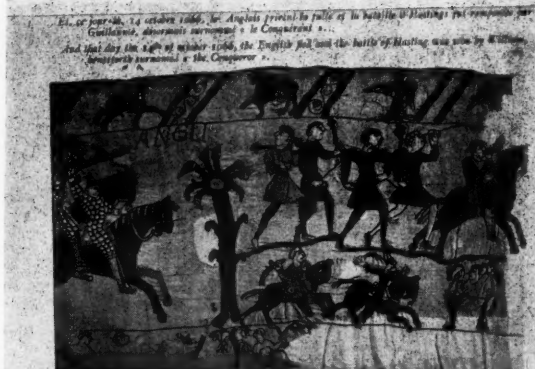 Et, ce jour-là, 14 octobre 1066, les Anglais prirent la fuite et la bataille d'Hastings fut remportée par
Guillaume, désormais surnommé « le Conquérant »...
And that day the 14th of october 1066, the English fled and the battle of Hasting was won by William
henceforth surnamed « the Conqueror ».
ANGLI